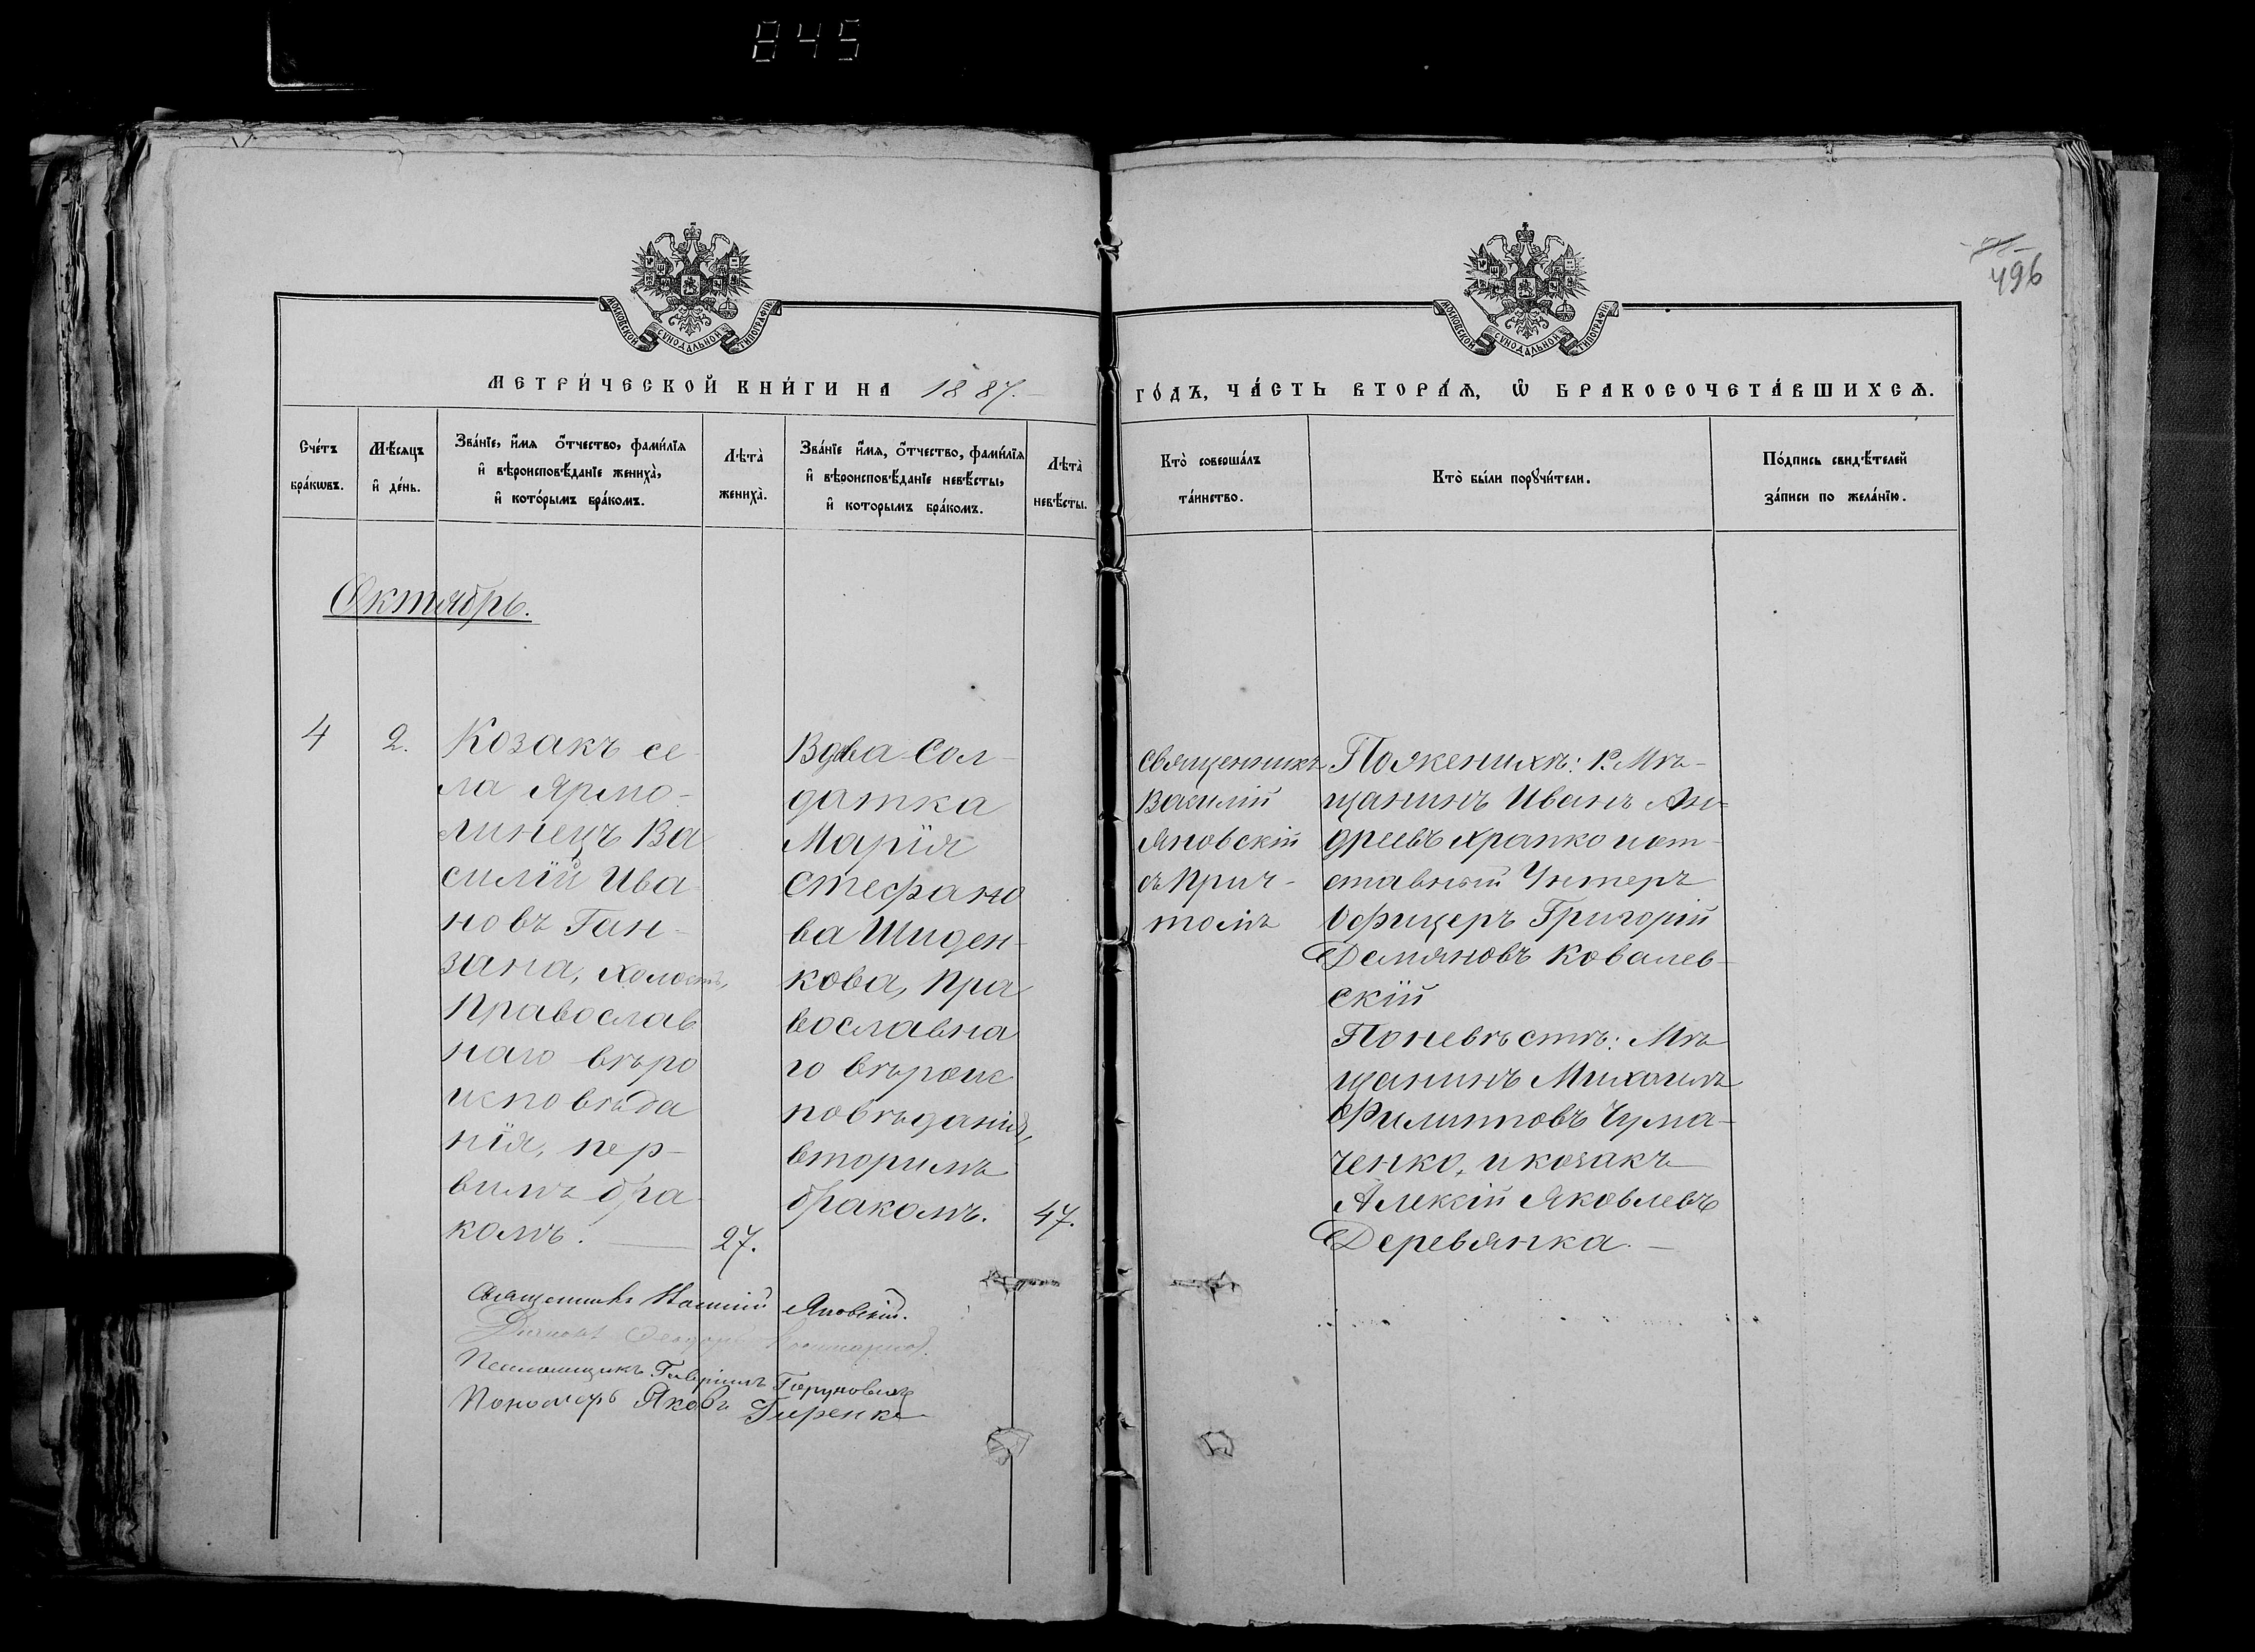 845
496
МОСКОВСКОЙ СѴНОДАЛЬНОЙ ТИПОГРАФІИ
МОСКОВСКОЙ СѴНОДАЛЬНОЙ ТИПОГРАФІИ
МЕТРИ́ЧЕСКОЙ КНИ́ГИ НА 1887.
ГО́ДЪ, ЧА́СТЬ ВТОРА́Ѧ, Ѡ҆ БРАКОСОЧЕТА́ВШИХСѦ.
Сче́тъ
бра́кѡвъ.
Мѣ́сяцъ
и҆ де́нь.
Зва́нїе, и҆́мя ѻ҆́тчество, фами́лїя
и҆ вѣроисповѣ́данїе жениха̀,
и҆ кото́рымъ бра́комъ.
Лѣта̀
жениха̀.
Зва́нїе и҆́мя, ѻ҆́тчество, фами́лїя
и҆ вѣроисповѣ́данїе невѣ́сты,
и҆ которымъ бра́комъ.
Лѣта̀
невѣ́сты.
Кто̀ соверша́лъ
та́инство.
Кто̀ бы́ли порꙋчи́тели.
По́дпись свидѣ́телей
за́писи по жела́нїю.
Октябрь.
4
2.
Козакъ се-
ла Ярмо-
линецъ Ва
силій Ива
новъ Ган-
зана, холостъ,
Православ
наго вѣро
исповѣда
нія, пер-
вимъ бра-
комъ.
27.
Вдова Сол-
датка
Марія
Стефано
ва Шиден-
кова, Пра
вославна
го вѣроис
повѣданія,
вторимъ
бракомъ.
47.
Священникъ
Василій
Яновскій
съ Прич-
томъ
По женихѣ: 1. Мѣ-
щанинъ Иванъ Ан-
дреевъ Храпко и от-
ставный Унтеръ
Офицеръ Григорій
Демяновъ Ковалев-
скій
По невѣстѣ: Мѣ
щанинъ Михаилъ
Филиповъ Чума-
ченко, и козакъ
Алексій Яковлевъ
Деревянка.
Священникъ Василій Яновскій.
Псаломщикъ Гавріилъ
Пономарь Яковъ Гиренко